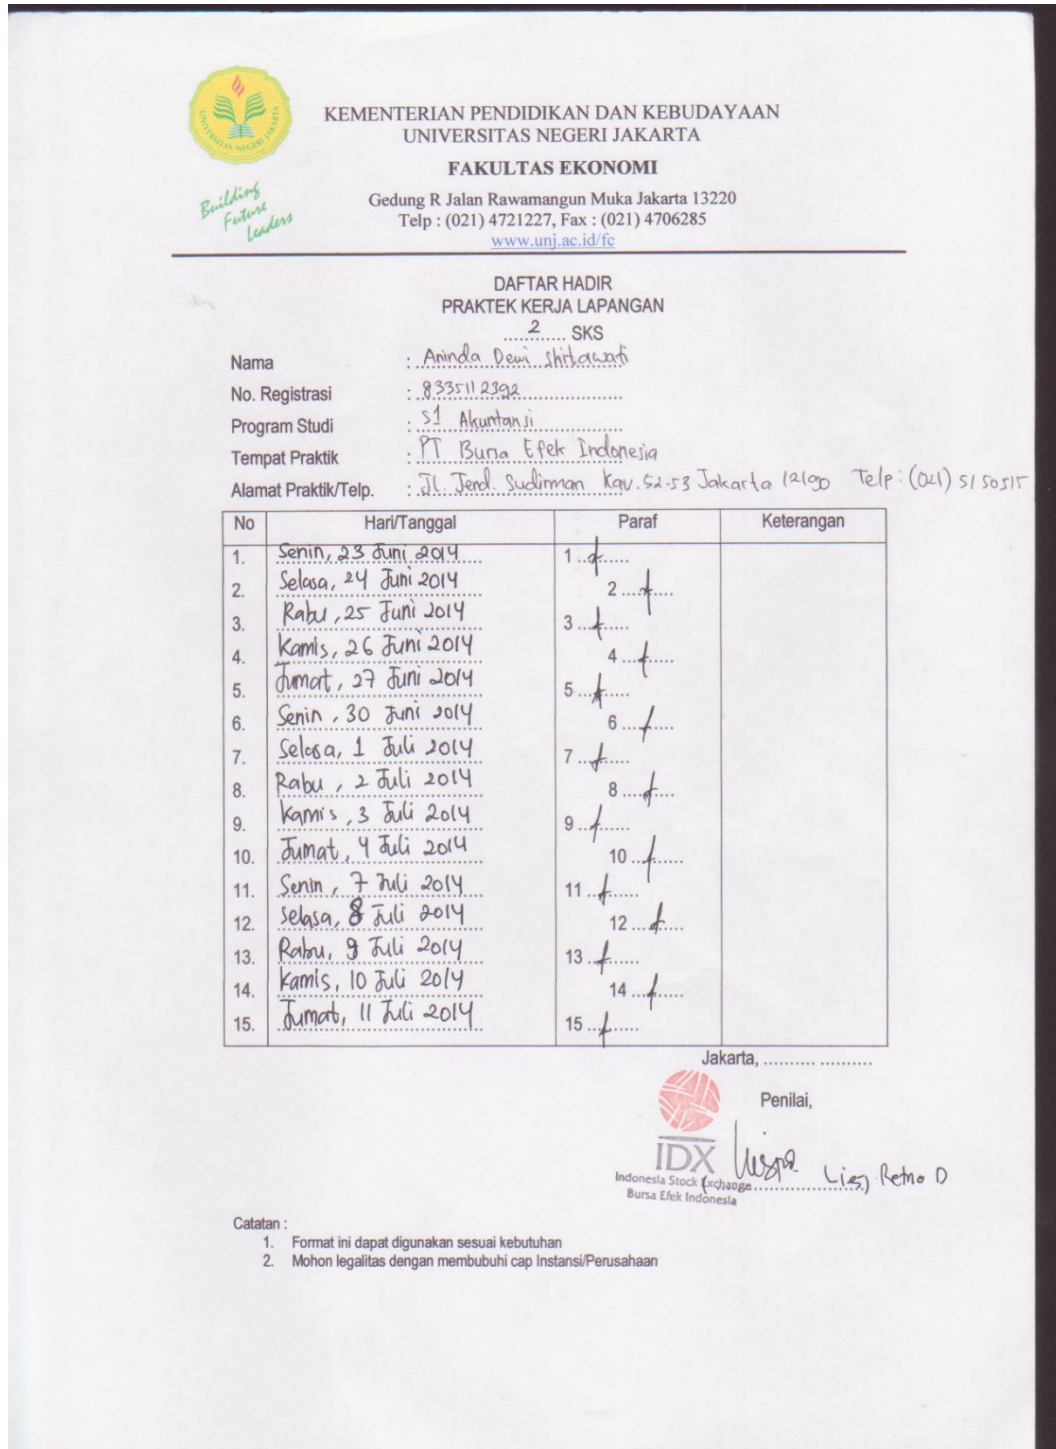 UNIVERSITAS NEGERI JAKARTA
Building
Future
Leaders
KEMENTERIAN PENDIDIKAN DAN KEBUDAYAAN
UNIVERSITAS NEGERI JAKARTA
FAKULTAS EKONOMI
Gedung R Jalan Rawamangun Muka Jakarta 13220
Telp : (021) 4721227, Fax : (021) 4706285
www.unj.ac.id/fe
DAFTAR HADIR
PRAKTEK KERJA LAPANGAN
....2.... SKS
Nama : Aninda Dewi Shitawati
No. Registrasi : 8335112392
Program Studi : S1 Akuntansi
Tempat Praktik : PT Bursa Efek Indonesia
Alamat Praktik/Telp. : Jl. Jend. Sudirman Kav. 52-53 Jakarta 12190 Telp : (021) 5150515
No Hari/Tanggal Paraf Keterangan
1. Senin, 23 Juni 2014 1
2. Selasa, 24 Juni 2014 2
3. Rabu, 25 Juni 2014 3
4. Kamis, 26 Juni 2014 4
5. Jumat, 27 Juni 2014 5
6. Senin, 30 Juni 2014 6
7. Selasa, 1 Juli 2014 7
8. Rabu, 2 Juli 2014 8
9. Kamis, 3 Juli 2014 9
10. Jumat, 4 Juli 2014 10
11. Senin, 7 Juli 2014 11
12. Selasa, 8 Juli 2014 12
13. Rabu, 9 Juli 2014 13
14. Kamis, 10 Juli 2014 14
15. Jumat, 11 Juli 2014 15
Jakarta, .......... ..........
Penilai,
IDX
Indonesia Stock Exchange
Bursa Efek Indonesia
(....................) Lies Retno D
Catatan :
1. Format ini dapat digunakan sesuai kebutuhan
2. Mohon legalitas dengan membubuhi cap Instansi/Perusahaan